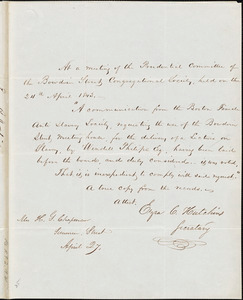 At a meeting of the Prudential Committee of
the Bowdoin Street Congregational Society, held on the
24th April 1843.
"A communication from the Boston Female
Anti Slavery Society, requesting the use of the Bowdoin
Street Meeting house for the delivery of a Lecture on
Slavery, by Wendell Phillips Esq. having been laid
before the board, and duly considered. it was voted,
That it is inexpedient to comply with said request."
A true copy from the records.
Attest.
Ezra C. Hutchins
Secretary
Mrs H. G. Chapman
Summer Street
April 27.